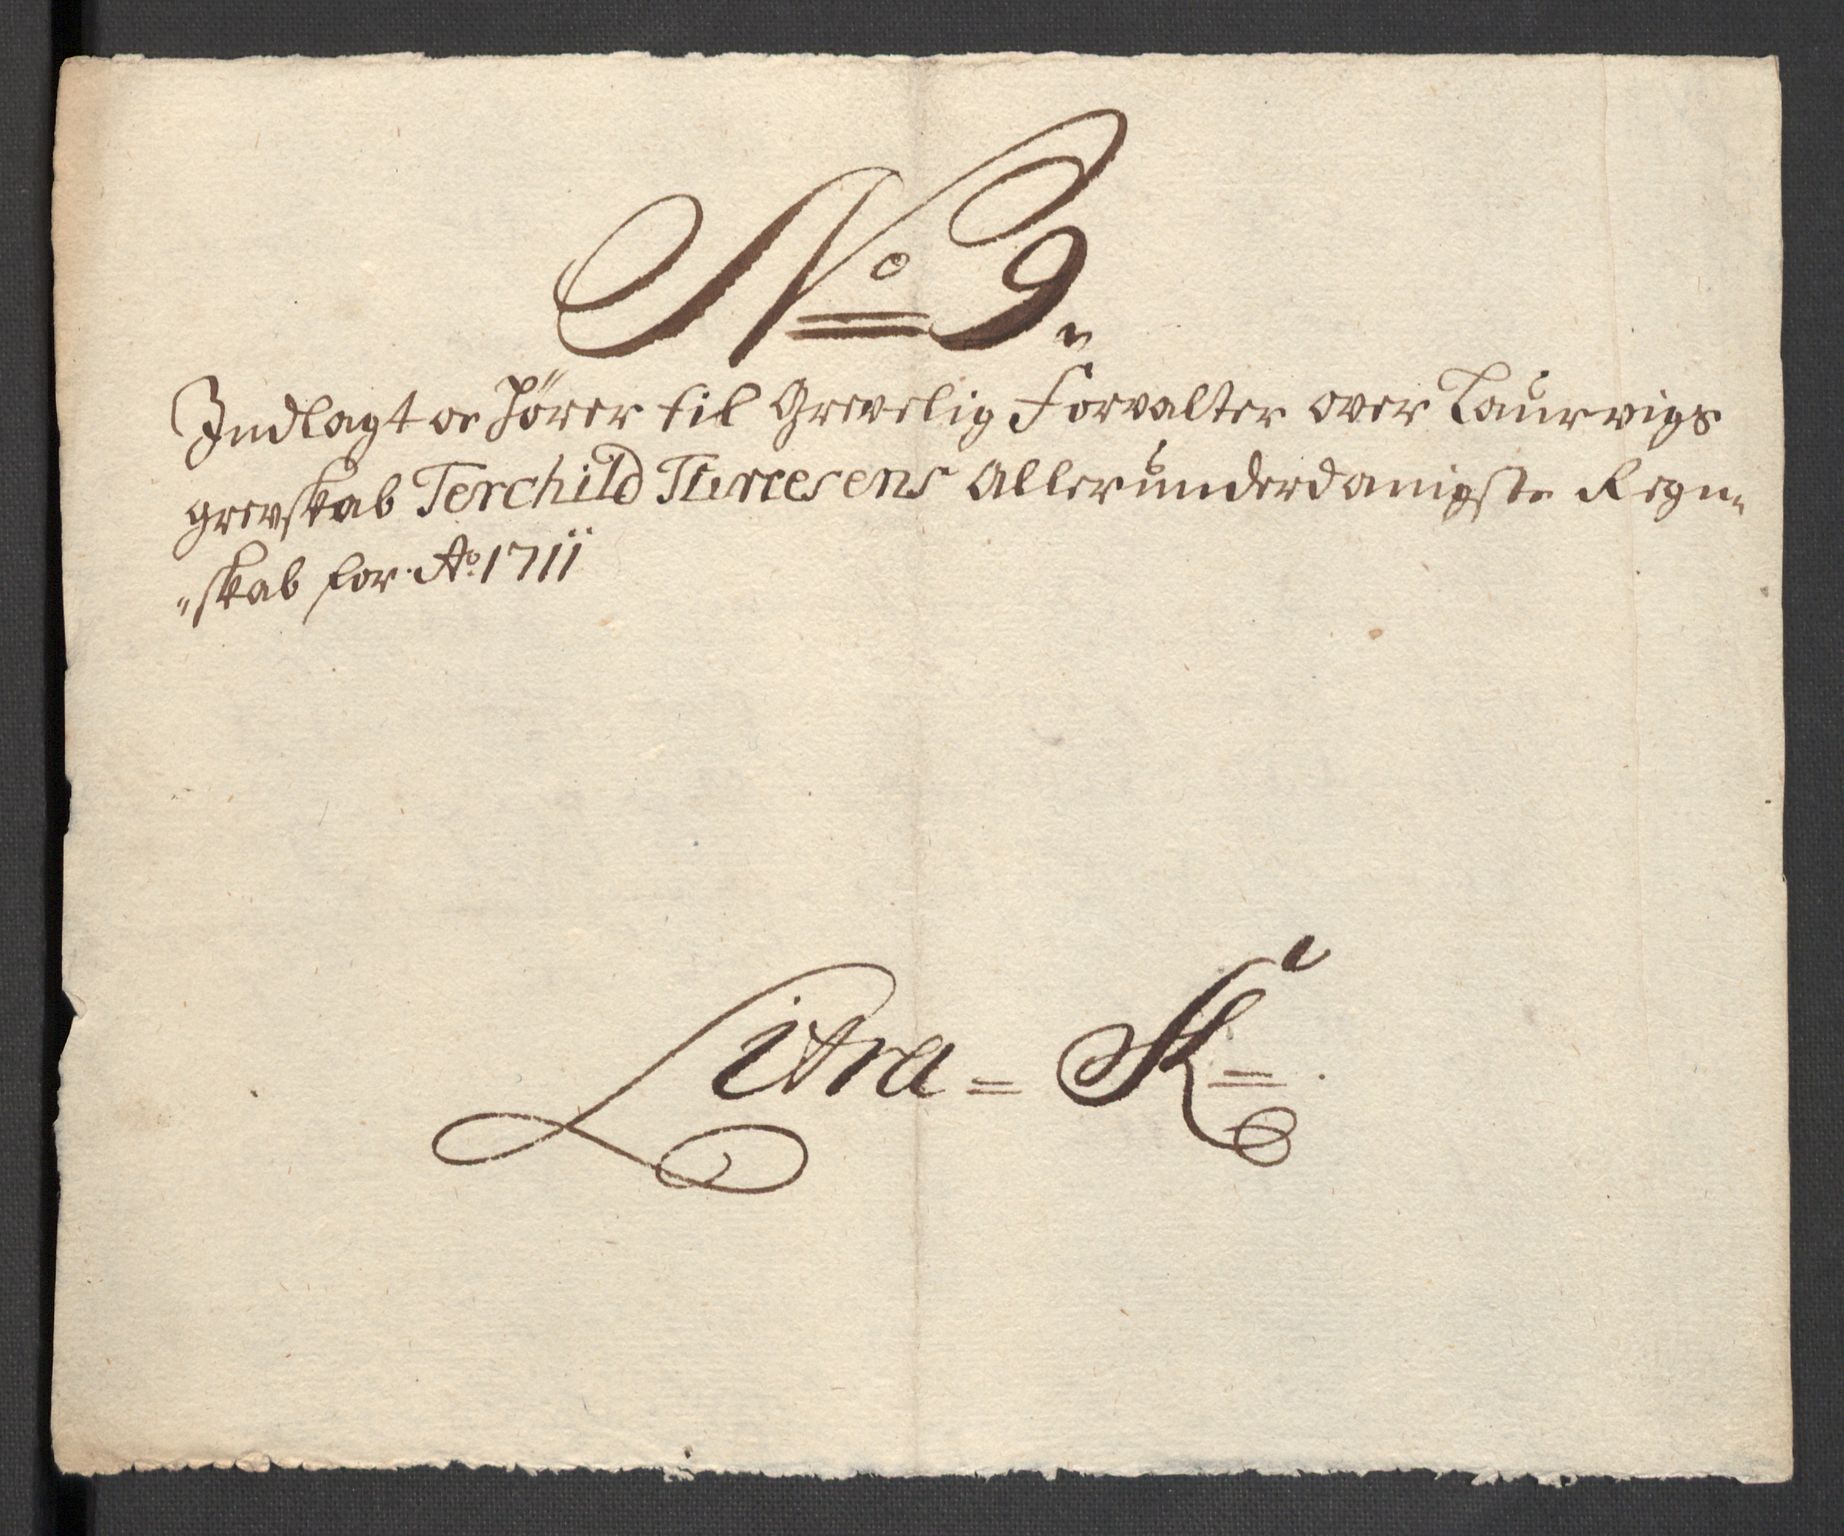 No 9.
Indlagt oc hører til Grevelig Forvalter over Laurvigs
grevskab Terchild Turcesens Allerunderdanigste Regn-
"skab for Ao 1711
Litra = K =